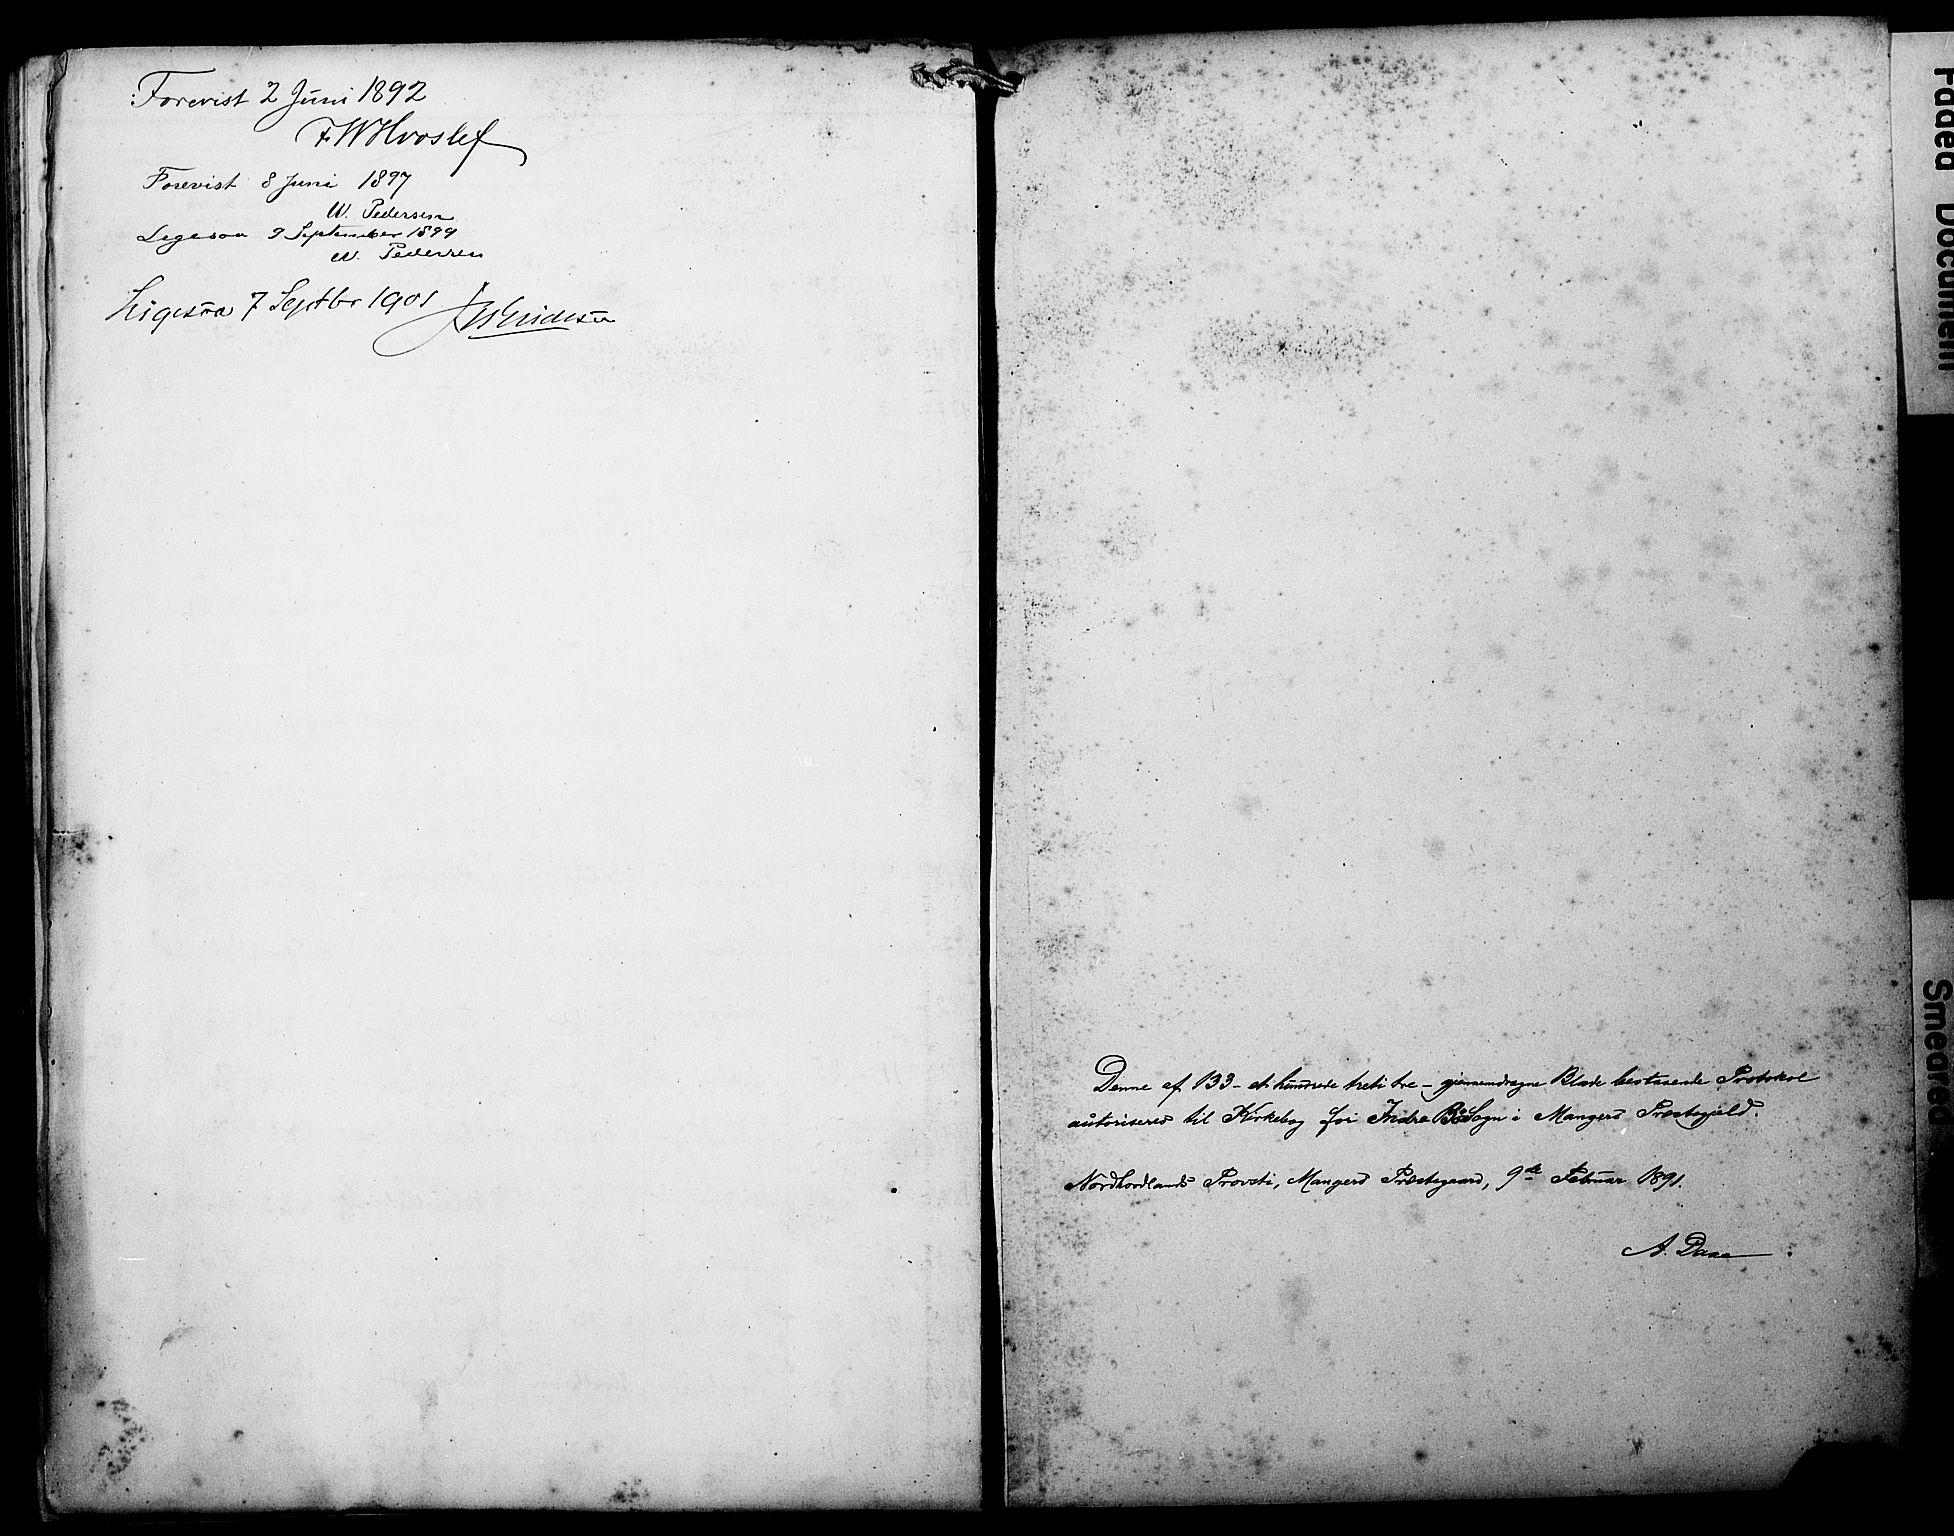 Forevist 2 Juni 1892
F. W Hvoslef
Forevist 8 Juni 1897
W. Pedersen
Ligesaa 9 September 1899
W. Pedersen
Ligesaa 7 Septbr 1901
Denne af 133 - et hundrede treti tre - gjennemdragne Blade bestaaende Protokol
autoriseres til Kirkebog for Indre Bø Sogn i Mangers Præstegjeld.
Nordhordlands Provsti, Mangers Præstegaard, 9de Februar 1891.
A. Daae
Faded Document
Smeared